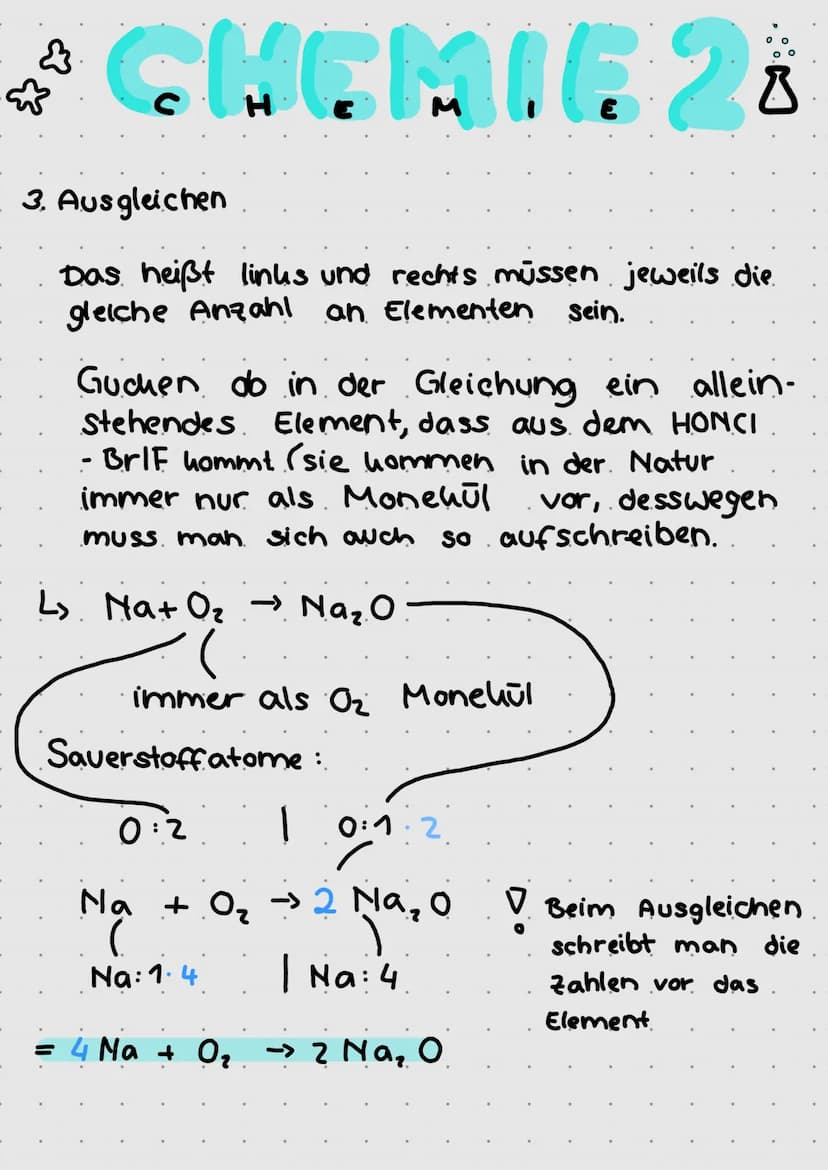 CHEMIE 2
C H E M I E
3. Ausgleichen
Das heißt links und rechts müssen jeweils die
gleiche Anzahl an Elementen sein.
Gucken ob in der Gleichung ein allein-
stehendes Element, dass aus dem HONCl
- BrIF kommt (sie kommen in der Natur
immer nur als Monekül vor, desswegen
muss man sich auch so aufschreiben.
↳ Na + O₂ → Na₂O
immer als O₂ Monekül
Sauerstoffatome :
O : 2 | O : 1 · 2
Na + O₂ → 2 Na₂O
Na : 1 · 4 | Na : 4
= 4 Na + O₂ → 2 Na₂O
! Beim Ausgleichen
schreibt man die
Zahlen vor das
Element